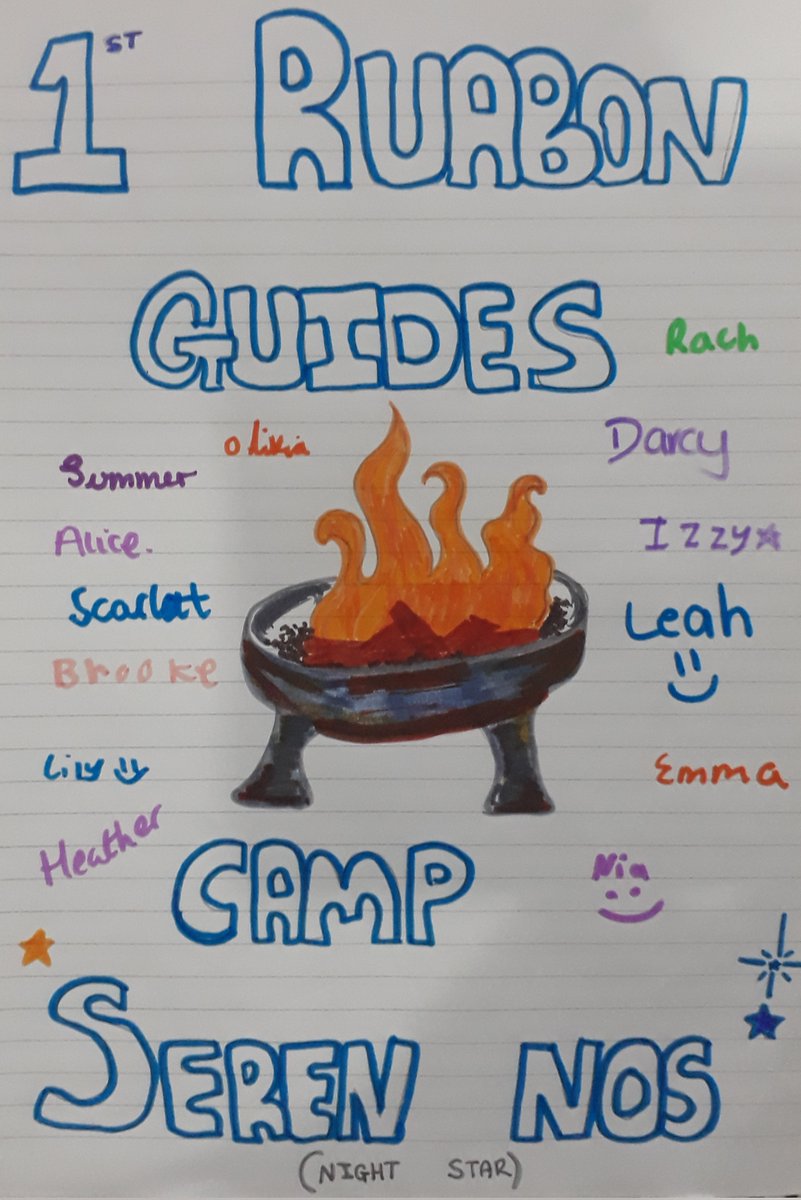 1ST RUABON
GUIDES
Rach
Olivia
Darcy
Summer
Alice.
Izzy
Scarlett
Leah
Brooke
Lily
Emma
Heather
CAMP
Nia
SEREN NOS
(NIGHT STAR)